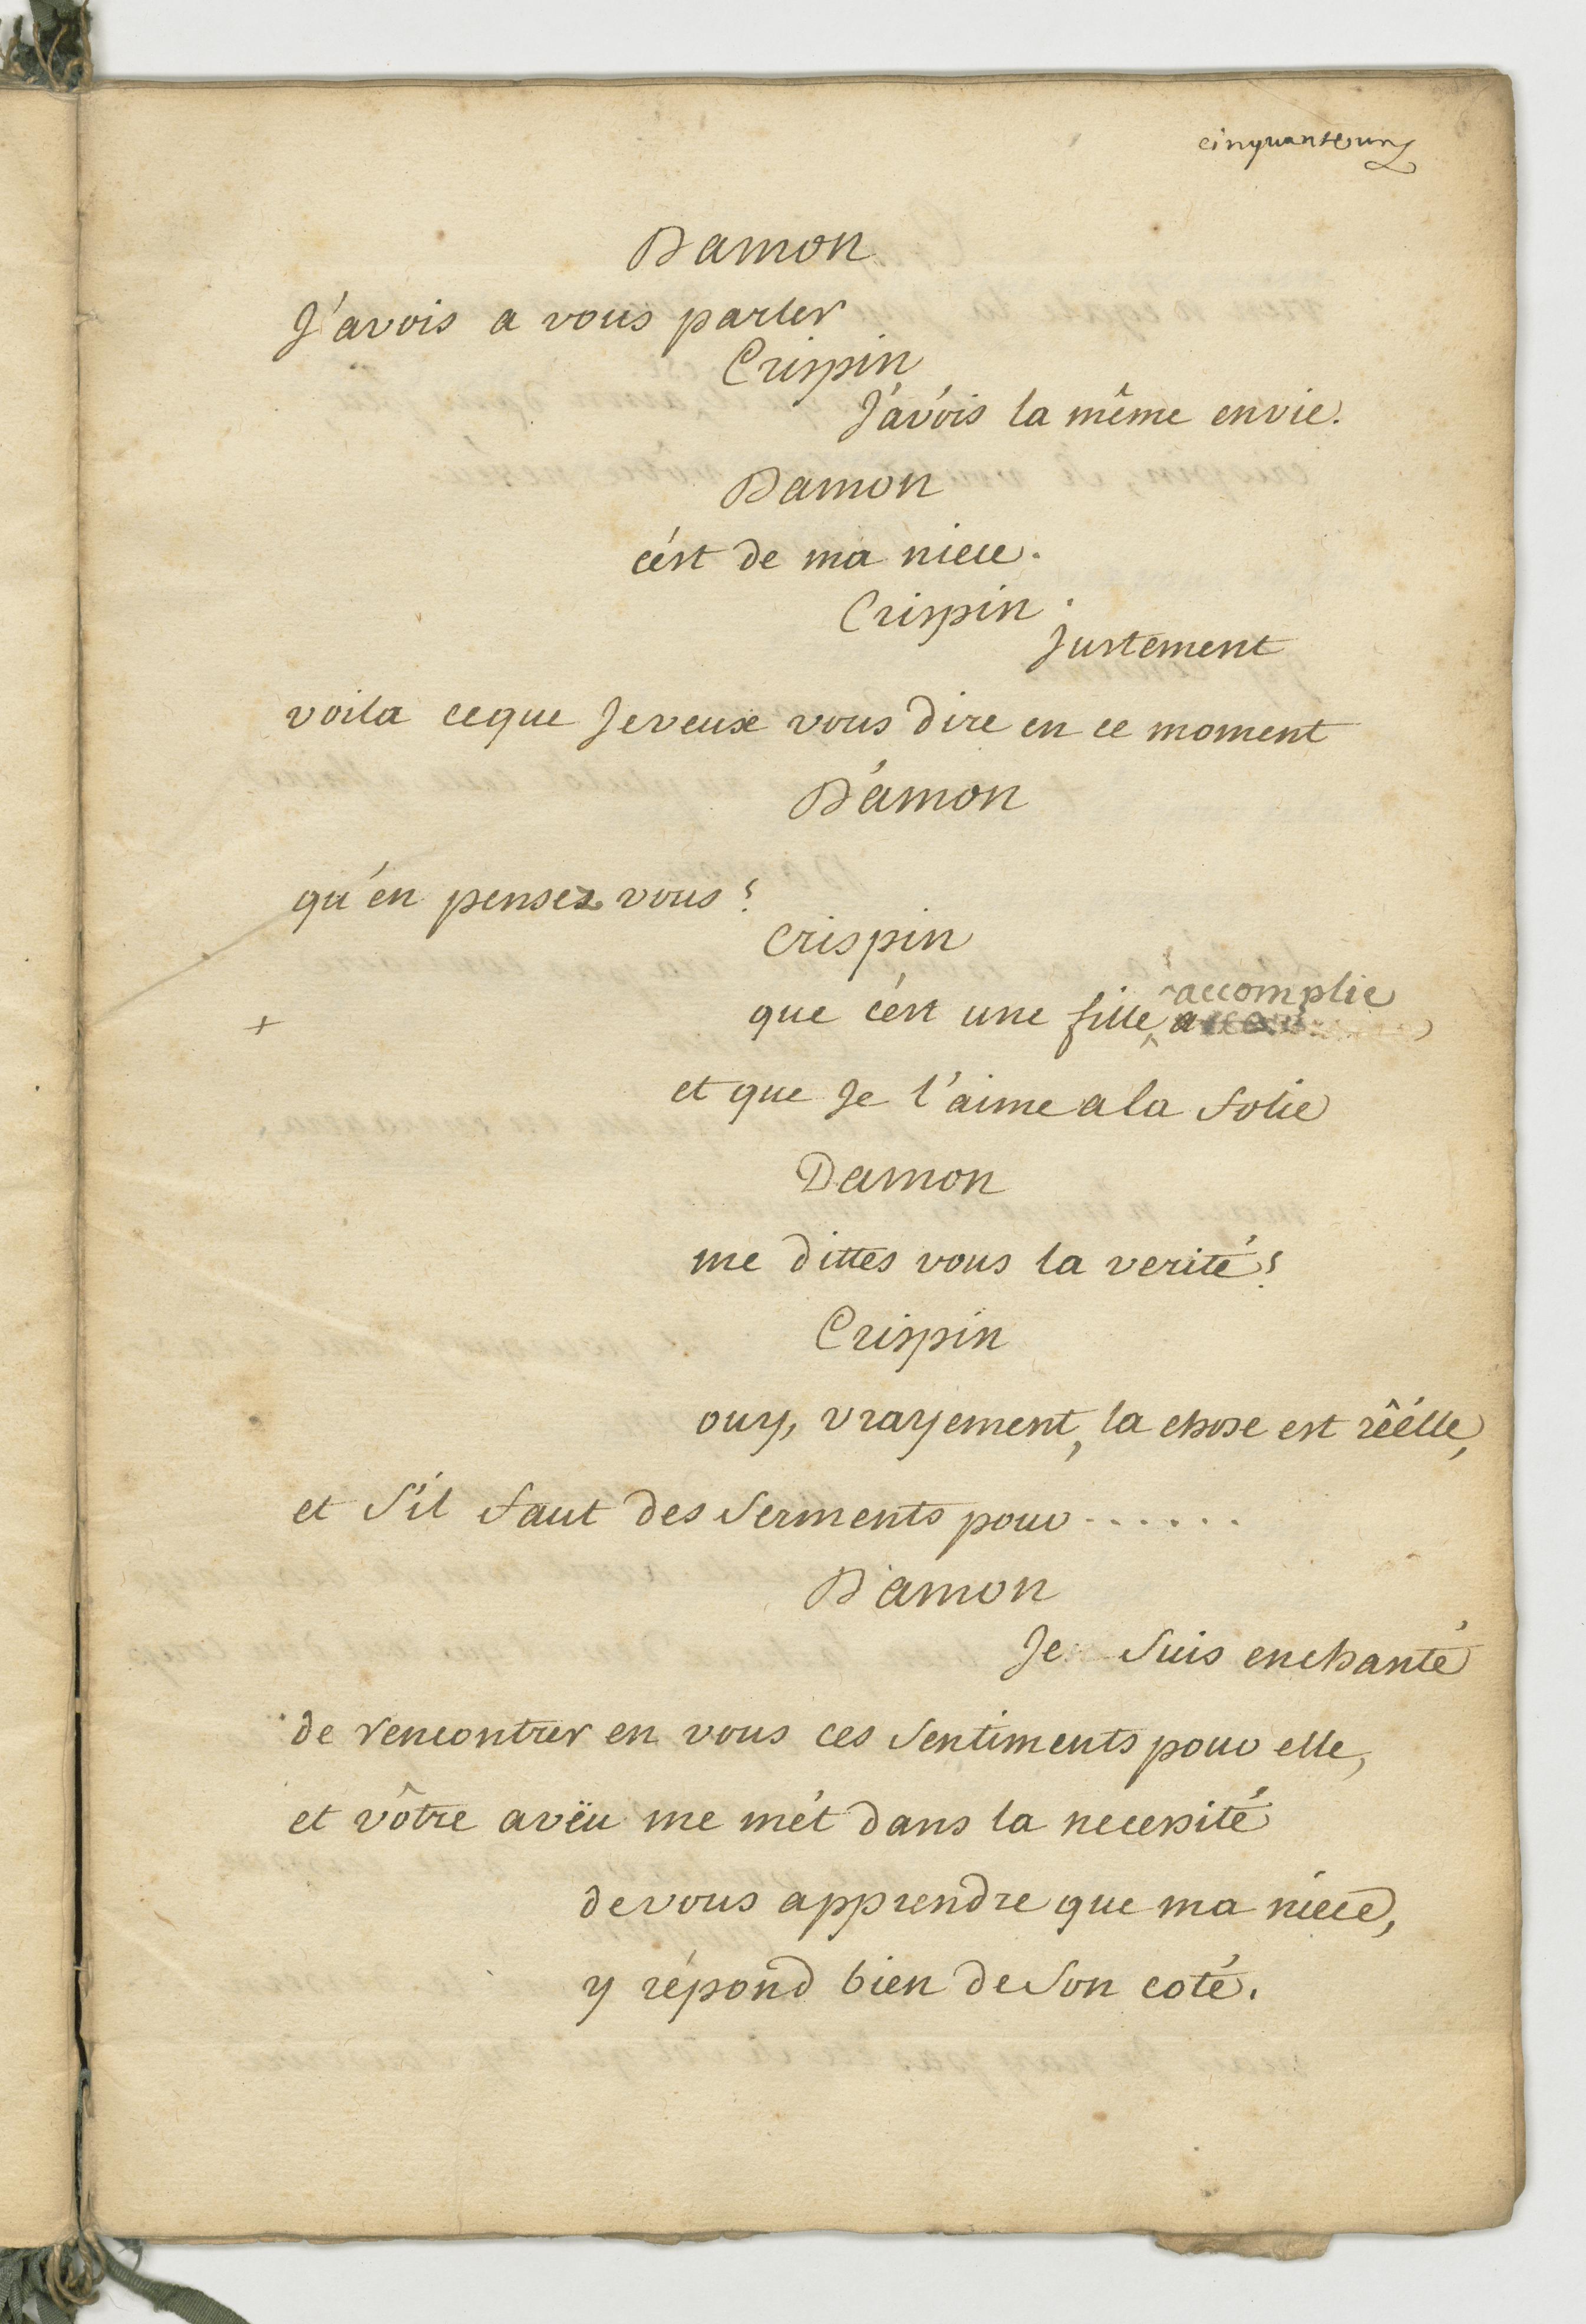 cinquante un
Damon
J'avois a vous parler
Crispin
J'avois la même envie.
Damon
c'est de ma niece.
Crispin.
Justement
voila ceque Jeveux vous dire en ce moment
Damon
qu'en pensez vous?
Crispin
accomplie
+ que c'est une fille
et que Je l'aime a la folie
Damon
me dittes vous la verité?
Crispin
ouy, vrayement, la chose est rêélle,
et S'il faut des Serments pour......
Damon
Je Suis enchanté
de rencontrer en vous ces Sentiments pour elle,
et vôtre avëu me mét dans la necessité
devous apprendre que ma niece,
y répond bien de Son coté.